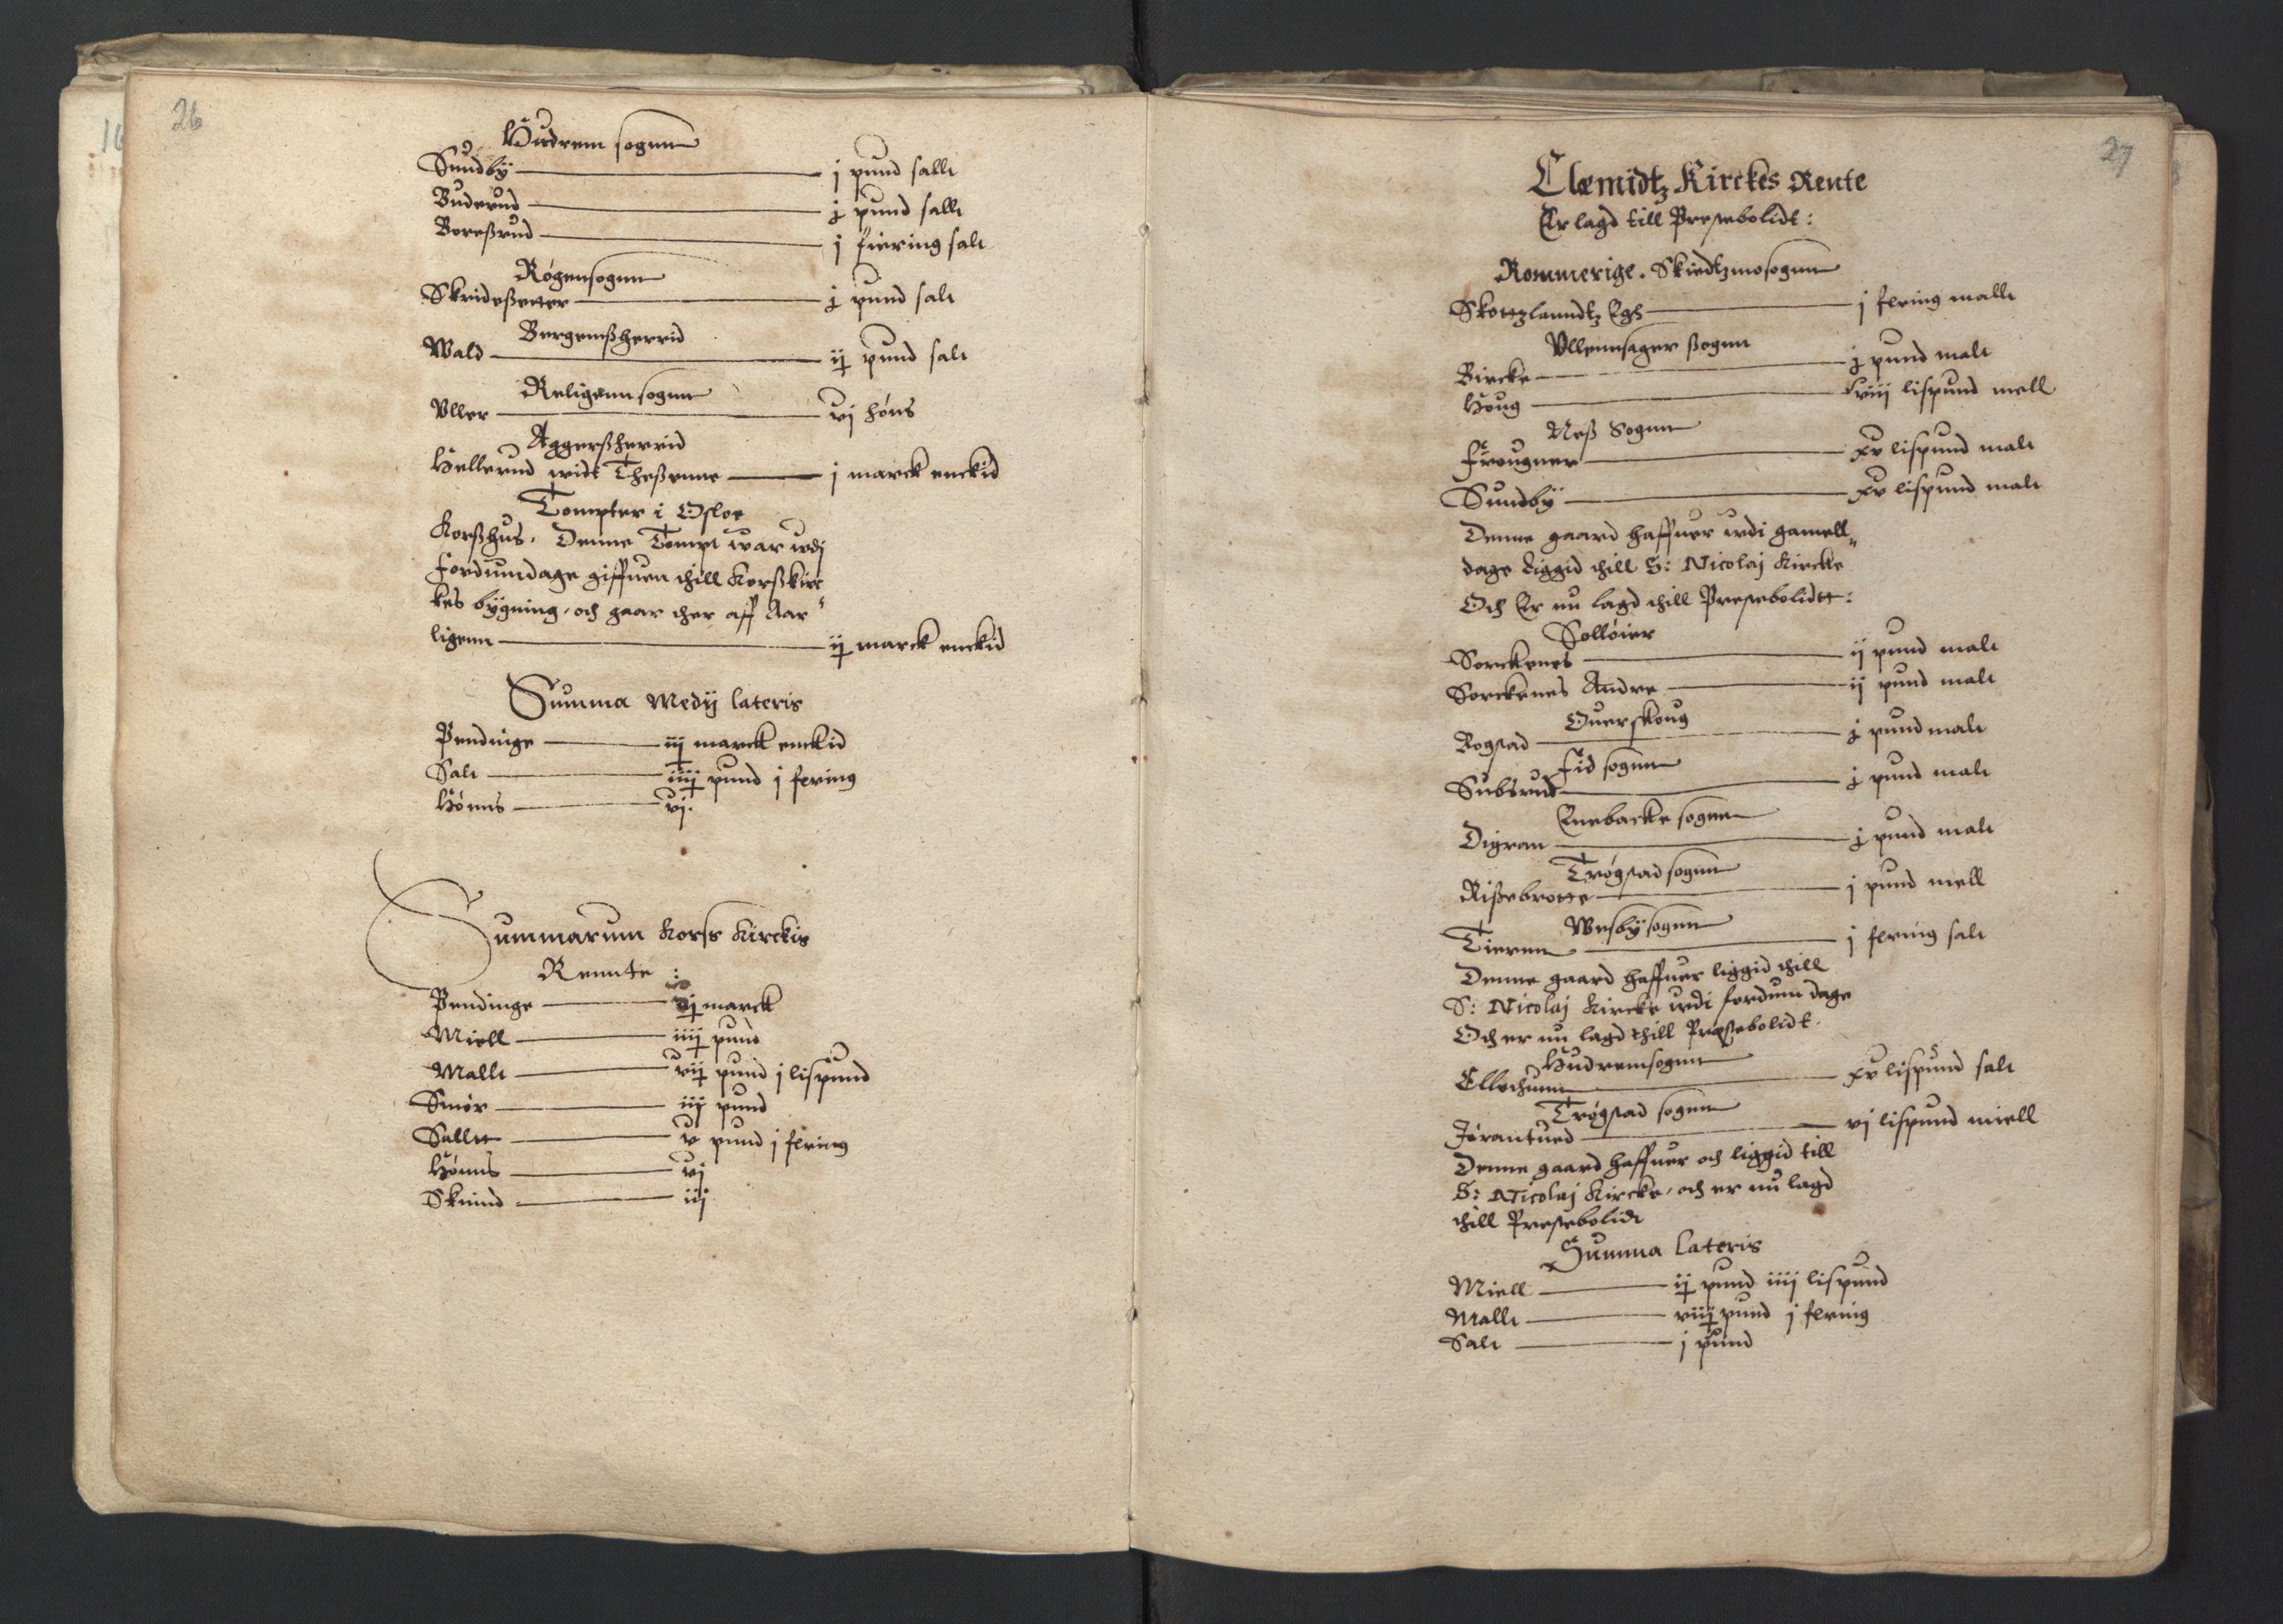 26
Hudrem sognn
Sundby — j pund sallt
Buderud — j pund sallt
Boreßrud — j fiering salt
Røgensognn
Skrideßetter — j pund salt
Bergemßherrid
Wald — ij pund salt
Religenn sognn
Vller — vj høns
Aggerßherrid
Hellerud widt Theßenne — j marck enckid
Tompter i Osloe
Korßhus. Denne Tompt war wdj
fordumdage giffuen thill Korßkirc
kes bygning, och gaar ther aff Aar
ligenn — ij marck enckid
Summa Medij lateris
Pendinge — iij marck enckid
Salt — iiij pund j fering
Hønns — vj.
Summarum Korss Kirckis
Rennte :
Pendinge — vj marck
Miell — iiij pund
Mallt — vij pund j lispund
Smør — iij pund
Salltt — v pund j fering
Hønns — vj
Skinnd — iij
27
Clemidtz Kirckes Rente
Er lagd till Prestebolidt :
Rommerige. Skiedtzmosognn
Skottzlanndtz Egh — j fering mallt
Vllennsager ßognn
Bircke — j pund malt
Houg — xviij lispund mell
Neß Sognn
Frougner — xv lispund malt
Sundby — xv lispund malt
Denne gaard haffuer wdi gamell
dage liggid thill S: Nicolaj Kircke
Och Er nu lagd thill Prestebolidtt :
Solløier
Sorckenes — ij pund malt
Sorckenes Andre — ij pund malt
Ouerskoug
Rogstad — j pund malt
Fid sognn
Subsrud — j pund malt
Enebacke sognn
Digran — j pund malt
Trøgstad sognn
Rißebrotte — j pund mell
Wesby sognn
Tieren — j fering salt
Denne gaard haffuer liggid thill
S: Nicolaj Kircke wdi fordum dage
Och er nu lagd thill Prestebolidt.
Hudremsognn
Ellochunn — xv lispund salt
Trøgstad sognn
Jørantued — vj lispund miell
Denne gaard haffuer och liggid till
S: Nicolaj Kircke, och er nu lagd
thill Prestebolidt
Summa lateris
Miell — ij pund iiij lispund
Mallt — viij pund j fering
Salt — j pund